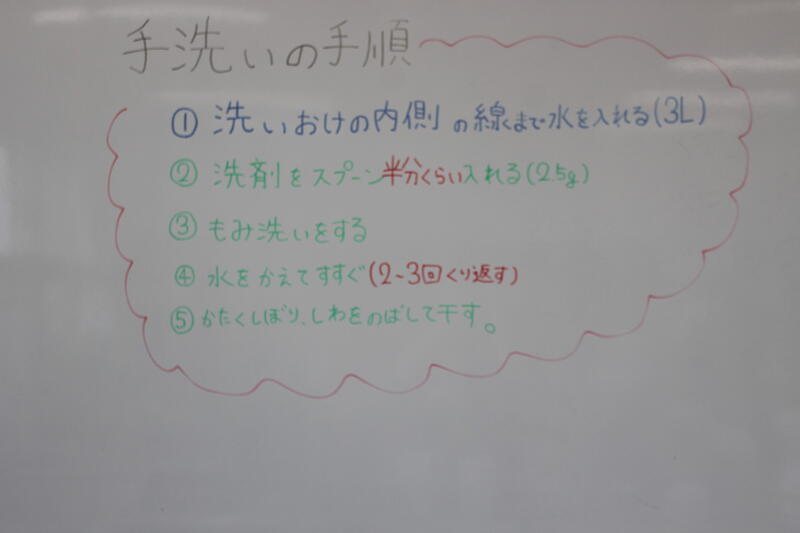 手洗いの手順
① 洗いおけの内側の線まで水を入れる(3L)
② 洗剤をスプーン半分くらい入れる(2.5g)
③ もみ洗いをする
④ 水をかえてすすぐ(2~3回くり返す)
⑤ かたくしぼり、しわをのばして干す。